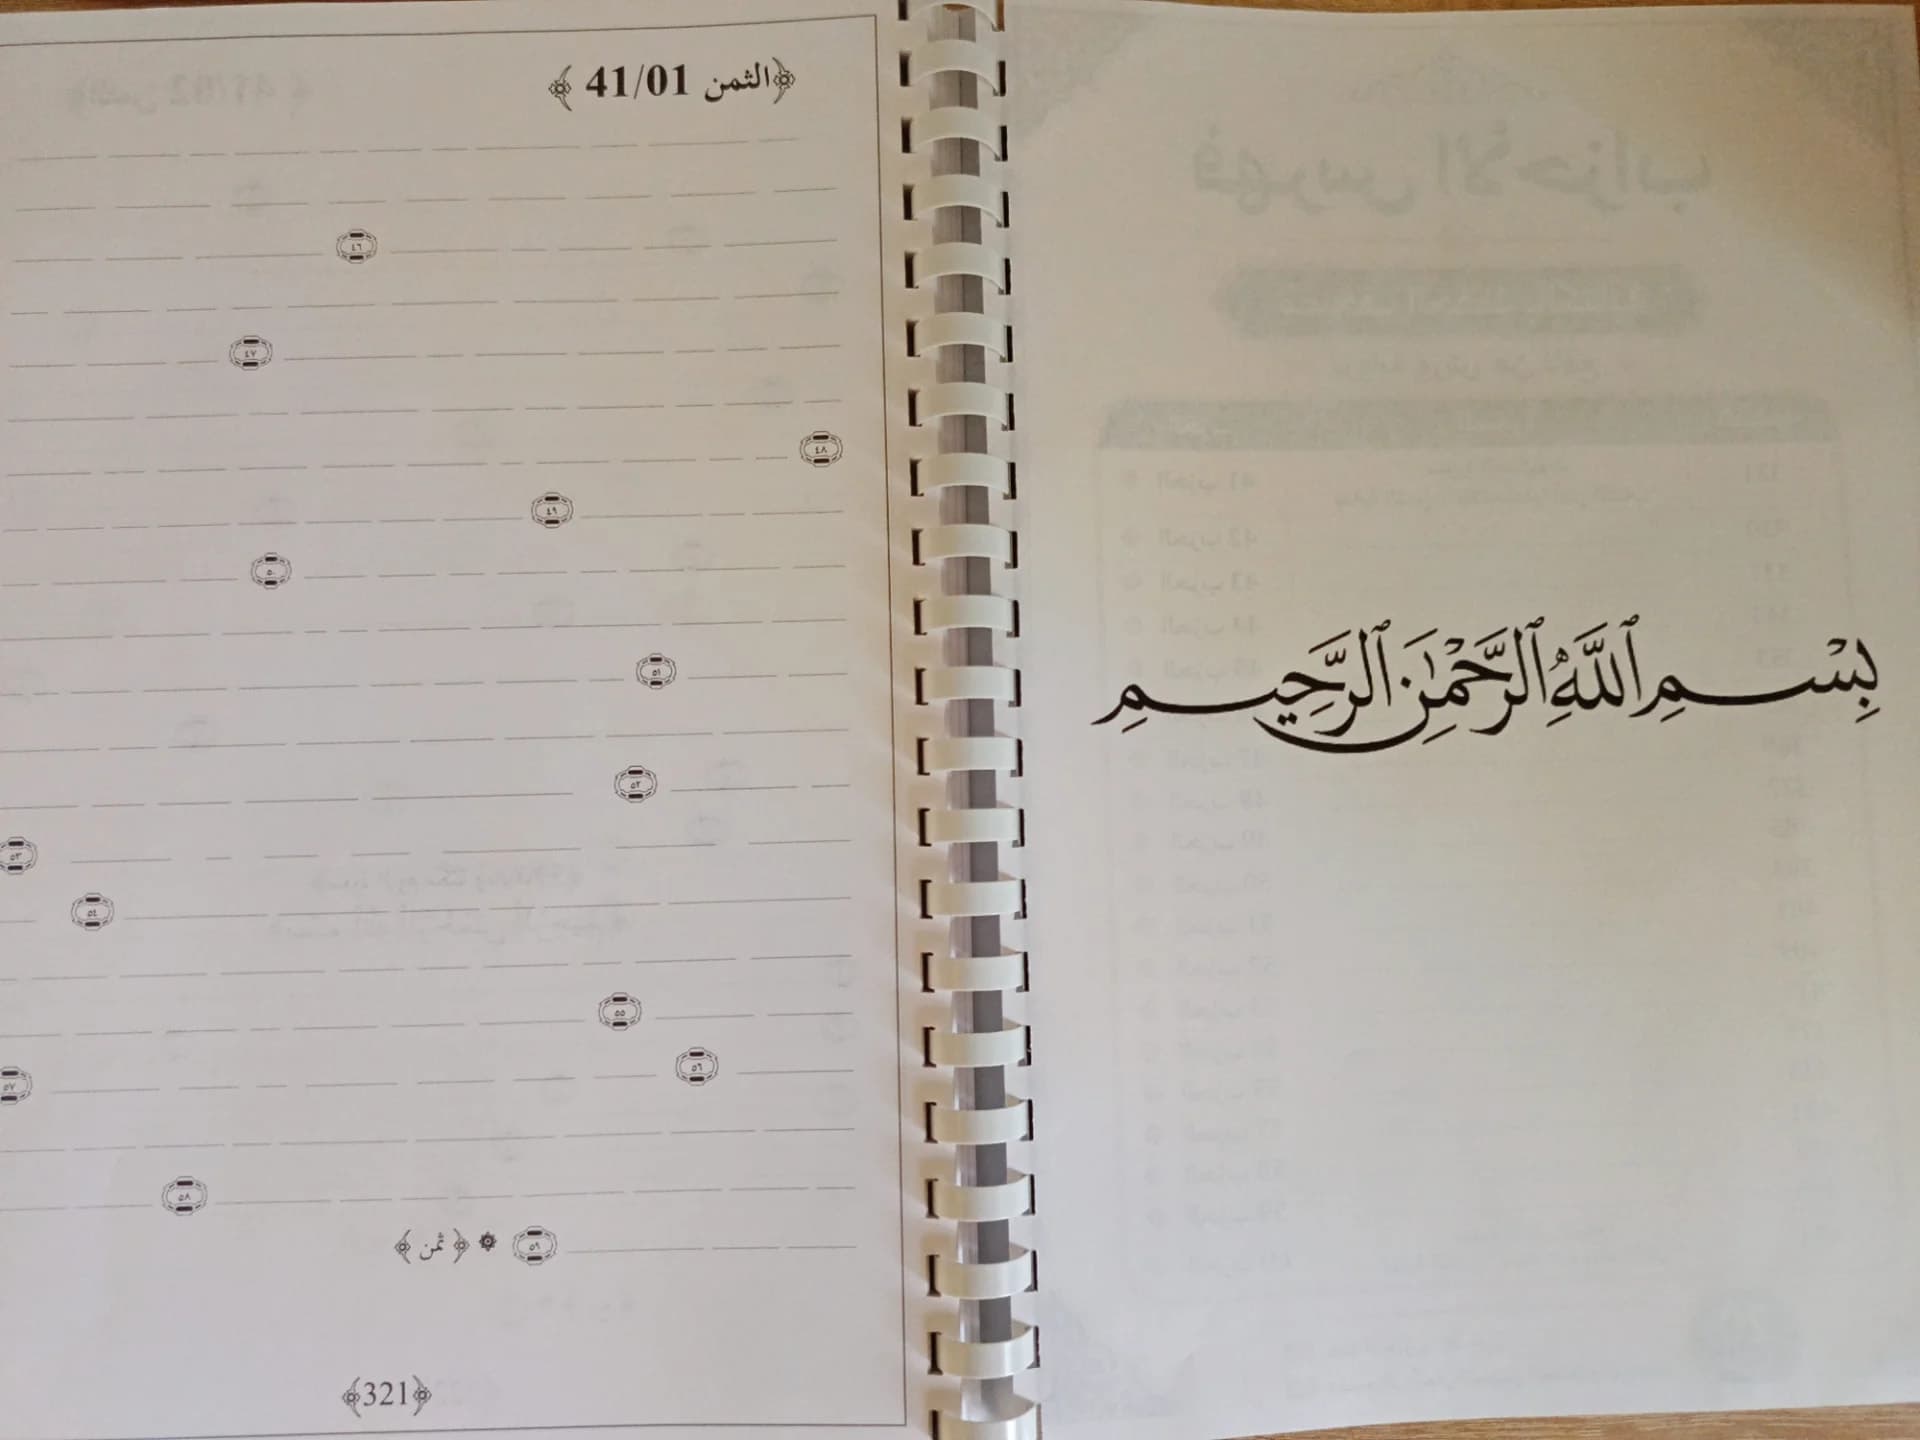 بِسْمِ ٱللَّهِ ٱلرَّحْمَٰنِ ٱلرَّحِيمِ
﴿الثمن 41/01﴾
٤٦
٤٧
٤٨
٤٩
٥٠
٥١
٥٢
٥٣
٥٤
٥٥
٥٦
٥٧
٥٨
٥٩ ۞ ﴿ثمن﴾
﴿321﴾